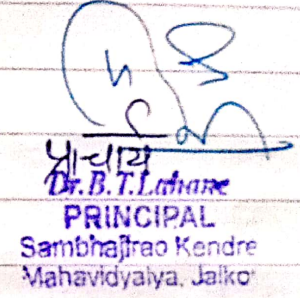 प्राचार्य
Dr. B. T. Lahane
PRINCIPAL
Sambhajirao Kendre
Mahavidyalya, Jalkot